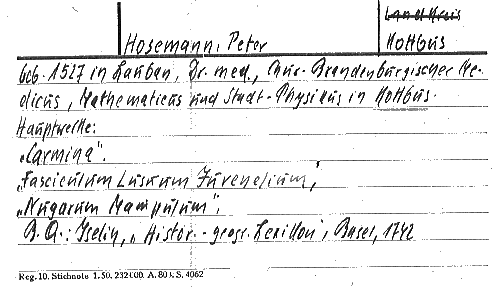 Landkreis
Hosemann, Peter Kottbus
geb. 1527 in Lauban, Dr. med., Chur-Brandenburgischer Me-
dicus, Mathematicus und Stadt-Physikus in Kottbus.
Hauptwerke:
„Carmina".
„Fasciculum Lusuum Juvenelium,
„Nugarum Mampulum".
B.A.: Iselin, „Histor.-geogr. Lexikon", Basel, 1742
Reg. 10. Stichnote 1. 50. 232000. A. 80 k. S. 4062